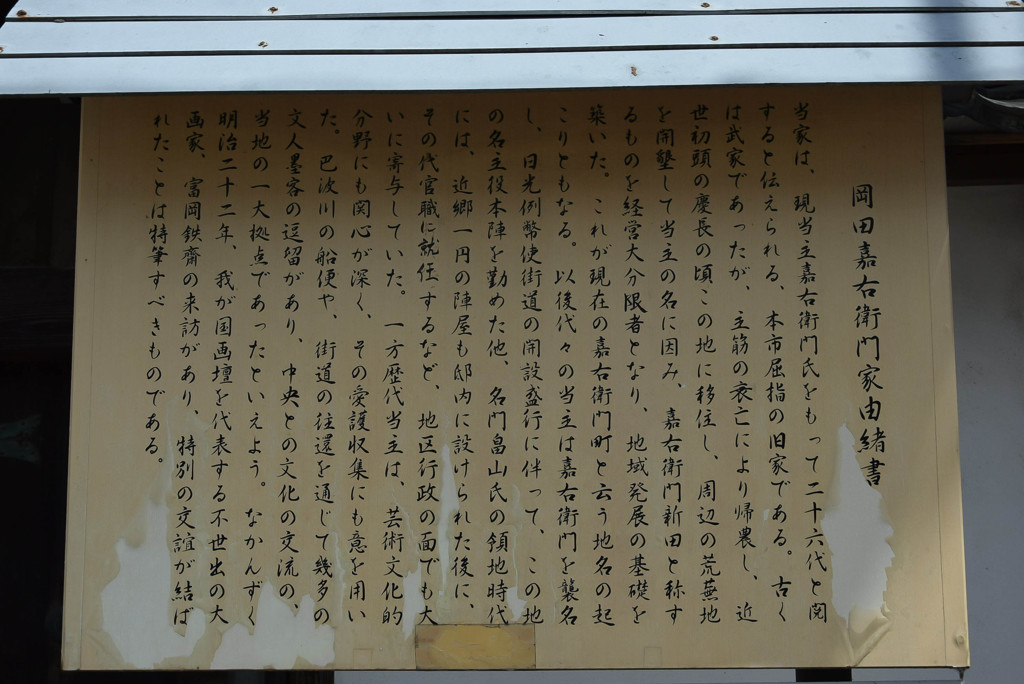 岡田嘉右衛門家由緒書
当家は、現当主嘉右衛門氏をもって二十六代と関
すると伝えられる、本市屈指の旧家である。古く
は武家であったが、主筋の衰亡により帰農し、近
世初頭の慶長の頃、この地に移住し、周辺の荒蕪地
を開墾して当主の名に因み、嘉右衛門新田と称す
るものを経営大分限者となり、地域発展の基礎を
築いた。これが現在の嘉右衛門町と云う地名の起
こりともなる。以後代々の当主は嘉右衛門を襲名
し、日光例幣使街道の開設盛行に伴って、この地
の名主役本陣を勤めた他、名門畠山氏の領地時代
には、近郷一円の陣屋も邸内に設けられた後に、
その代官職に就任するなど、地区行政の面でも大
いに寄与していた。一方歴代当主は、芸術文化的
分野にも関心が深く、その愛護収集にも意を用い
た。巴波川の船便や、街道の往還を通じて幾多の
文人墨客の逗留があり、中央との文化の交流の、
当地の一大拠点であったといえよう。なかんずく
明治二十二年、我が国画壇を代表する不世出の大
画家、富岡鉄齋の来訪があり、特別の交誼が結ば
れたことは特筆すべきものである。